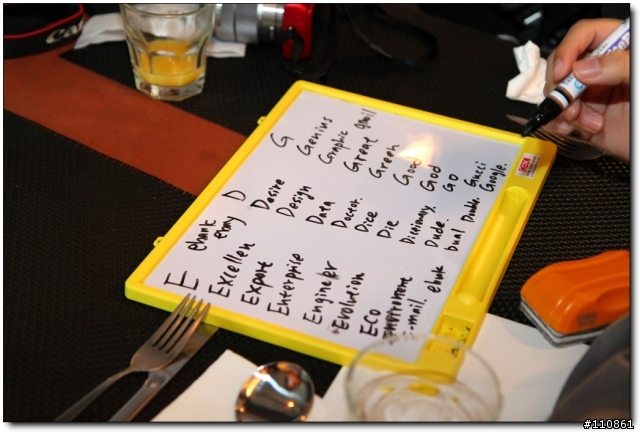 G
Genius
Graphic
Great gmail
Green
Good
God
GO
Gucci
Google.
D
Desire
Design
Data
Doctor.
Dice
Die
Dictionary.
Dude.
Dual Double.
E
Excellen
Export
Enterprise
Engineer
Evolution
ECO
E-mail.
#110861